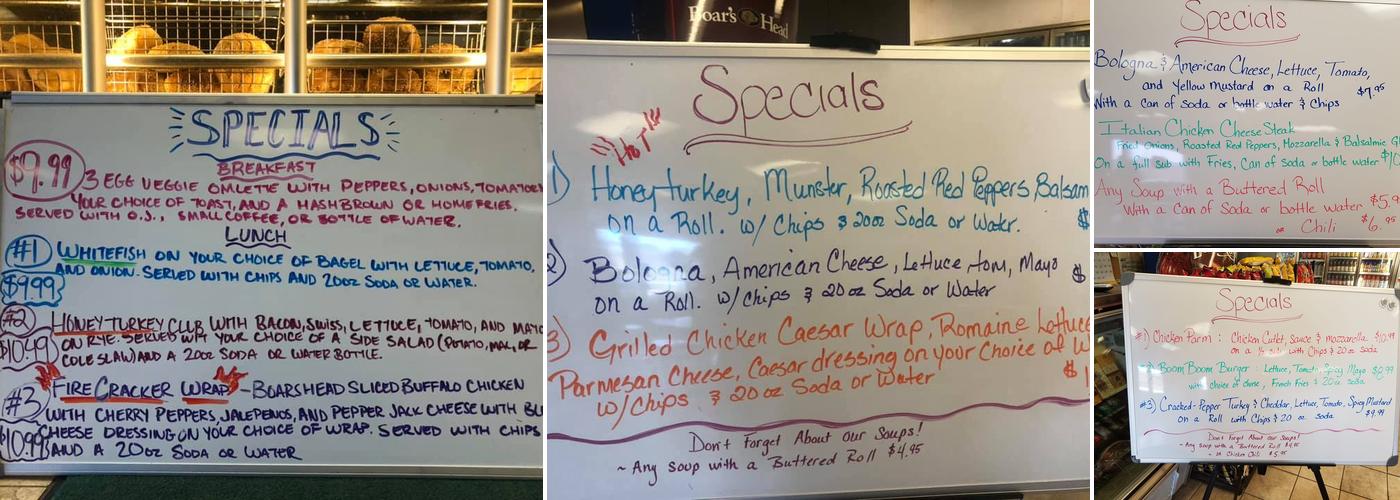 SPECIALS
BREAKFAST
$9.99
3 EGG VEGGIE OMLETTE WITH PEPPERS, ONIONS, TOMATOES
YOUR CHOICE OF TOAST, AND A HASHBROWN OR HOMEFRIES.
SERVED WITH O.J., SMALL COFFEE, OR BOTTLE OF WATER.
LUNCH
#1 WHITEFISH ON YOUR CHOICE OF BAGEL WITH LETTUCE, TOMATO,
AND ONION. SERVED WITH CHIPS AND 20OZ SODA OR WATER.
$9.99
#2 HONEY TURKEY CLUB WITH BACON, SWISS, LETTUCE, TOMATO, AND MAYO
ON RYE. SERVED WITH YOUR CHOICE OF A SIDE SALAD (POTATO, MAC, OR
$10.49 COLE SLAW) AND A 20OZ SODA OR WATER BOTTLE.
FIRE CRACKER WRAP - BOARSHEAD SLICED BUFFALO CHICKEN
#3 WITH CHERRY PEPPERS, JALEPENOS, AND PEPPER JACK CHEESE WITH BLU
CHEESE DRESSING ON YOUR CHOICE OF WRAP. SERVED WITH CHIPS
$10.99 AND A 20OZ SODA OR WATER
Boar's Head
Specials
HOT
1) Honey turkey, Munster, Roasted Red Peppers, Balsam
on a Roll. w/ Chips & 20oz Soda or Water. $
2) Bologna, American Cheese, Lettuce, tom, Mayo $
on a Roll. w/ chips & 20 oz Soda or Water
3) Grilled Chicken Caesar Wrap, Romaine Lettuce
Parmesan Cheese, Caesar dressing on your Choice of W
w/ Chips & 20 oz Soda or Water $1
Don't Forget About our Soups!
~ Any Soup with a Buttered Roll $4.95
Specials
Bologna & American Cheese, Lettuce, Tomato,
and Yellow Mustard on a Roll $7.95
With a Can of Soda or bottle water & Chips
Italian Chicken Cheese Steak
Fried Onions, Roasted Red Peppers, Mozzarella & Balsalmic
On a full Sub with Fries, Can of Soda or bottle water
Any Soup with a Buttered Roll
With a Can of Soda or bottle water $5.9
or Chili $6.95
Specials
#1) Chicken Parm : Chicken Cutlet, Sauce & mozzarella $10.99
on a ½ sub with Chips & 20 oz soda
Boom Boom Burger : Lettuce, Tomato, Spicy Mayo $8.99
with choice of cheese, French Fries & 20oz soda
#3) Cracked-Pepper Turkey & Cheddar, Lettuce, Tomato, Spicy Mustard
on a Roll with Chips & 20 oz soda $9.99
Don't Forget About our Soups!
~ Any Soup with a Buttered Roll $4.95
~ or Chicken Chili $5.95